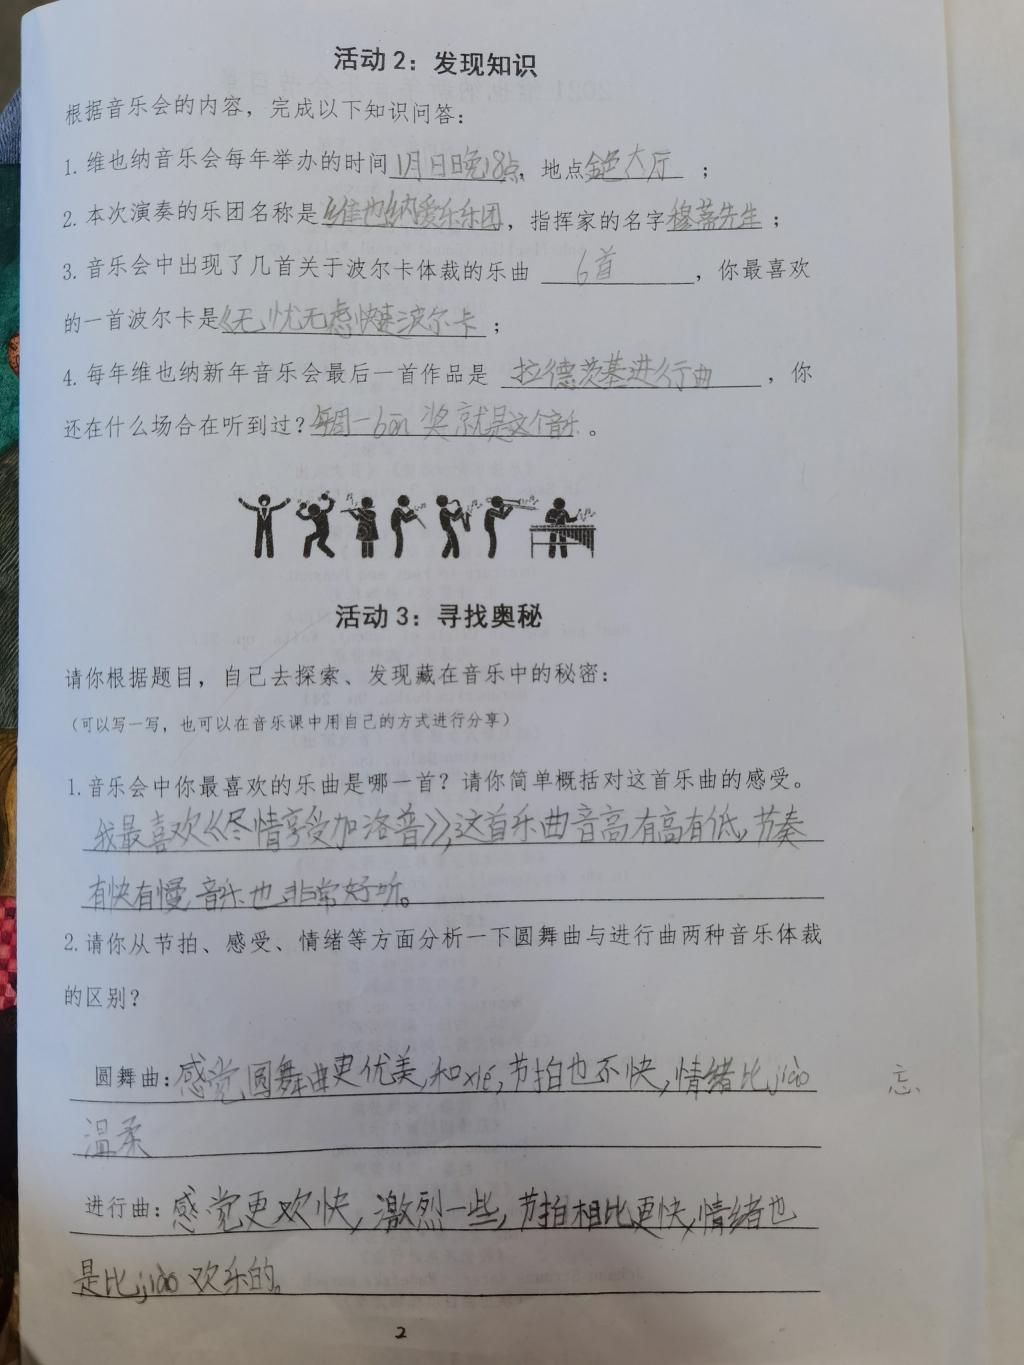 活动2：发现知识
根据音乐会的内容，完成以下知识问答：
1. 维也纳音乐会每年举办的时间1月日晚18点，地点金色大厅；
2. 本次演奏的乐团名称是维也纳爱乐乐团，指挥家的名字穆蒂先生；
3. 音乐会中出现了几首关于波尔卡体裁的乐曲 6首，你最喜欢
的一首波尔卡是《无忧无虑快速波尔卡；
4. 每年维也纳新年音乐会最后一首作品是 拉德茨基进行曲，你
还在什么场合在听到过？每周一 奖就是这个音乐。
活动3：寻找奥秘
请你根据题目，自己去探索、发现藏在音乐中的秘密：
（可以写一写，也可以在音乐课中用自己的方式进行分享）
1. 音乐会中你最喜欢的乐曲是哪一首？请你简单概括对这首乐曲的感受。
我最喜欢《尽情享受加洛普》，这首乐曲音高有高有低，节奏
有快有慢，音乐也非常好听。
2. 请你从节拍、感受、情绪等方面分析一下圆舞曲与进行曲两种音乐体裁
的区别？
圆舞曲：感觉圆舞曲更优美，和xié，节拍也不快，情绪比jiào
忘
温柔
进行曲：感觉更欢快，激烈一些，节拍相比更快，情绪也
是比jiào 欢乐的。
2